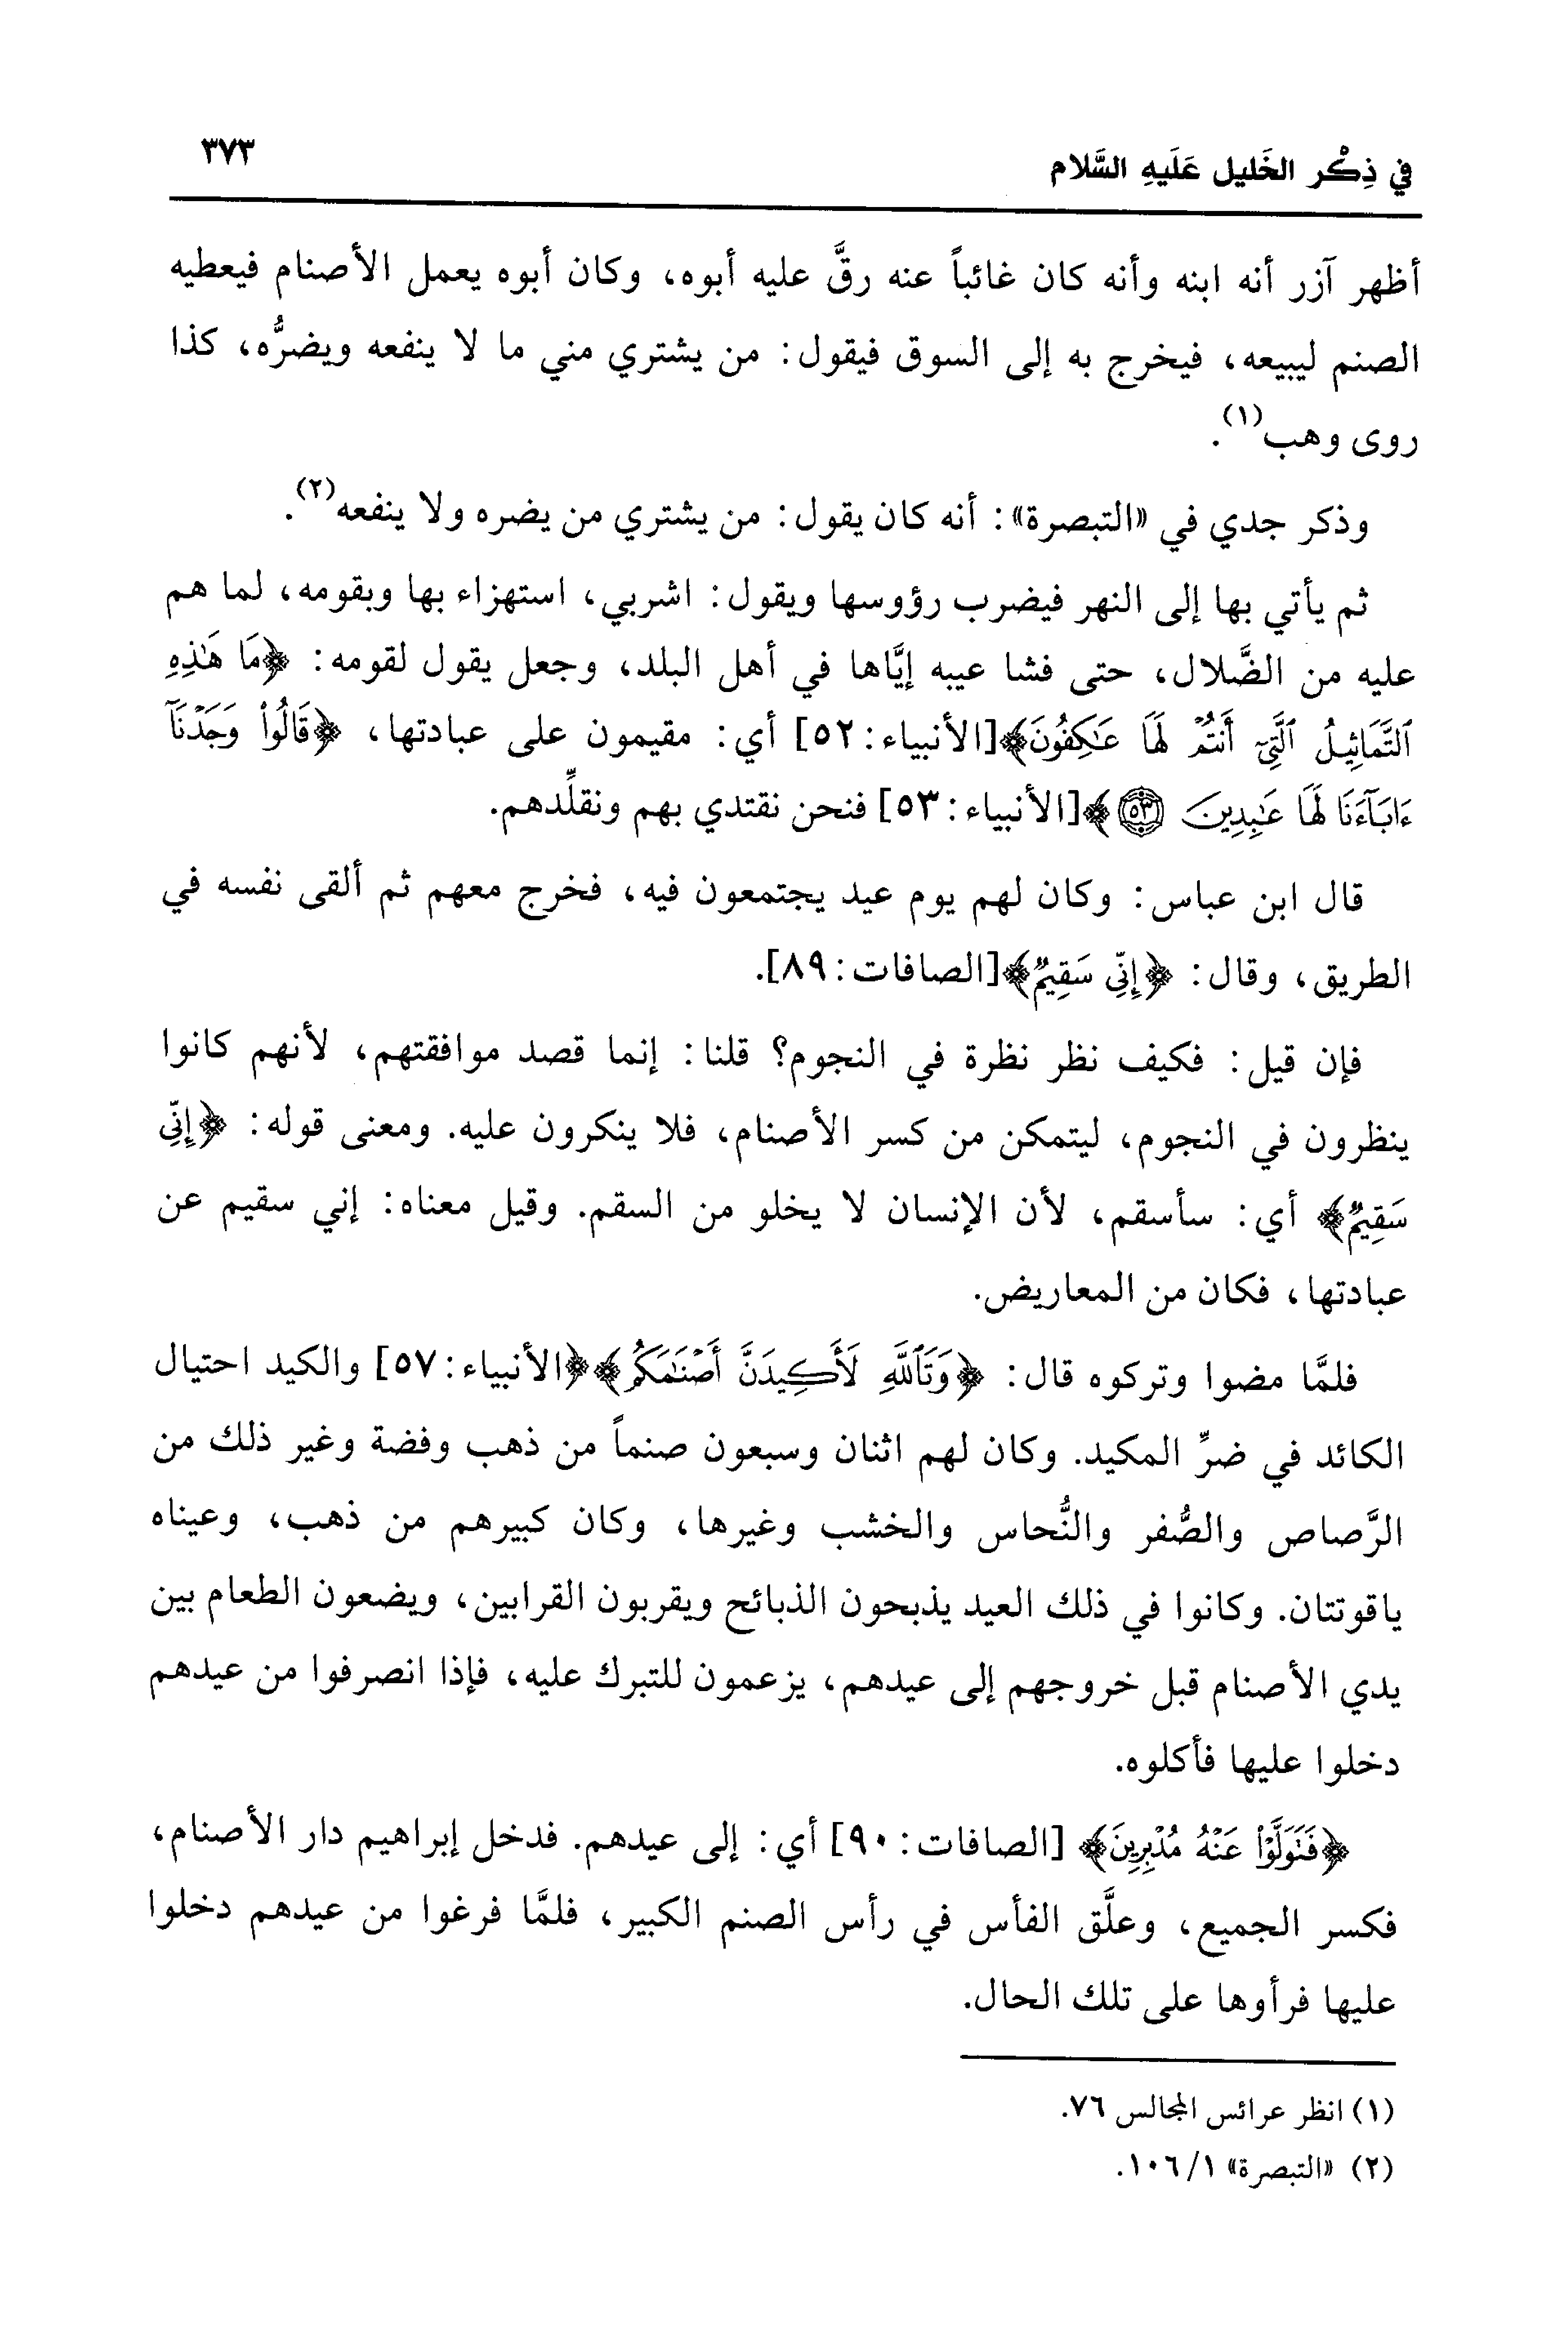 في ذِكْر الخَليل عَلَيهِ السَّلام ٣٧٣
أظهر آزر أنه ابنه وأنه كان غائباً عنه رقَّ عليه أبوه، وكان أبوه يعمل الأصنام فيعطيه
الصنم ليبيعه، فيخرج به إلى السوق فيقول: من يشتري مني ما لا ينفعه ويضرُّه، كذا
روى وهب(١).
وذكر جدي في «التبصرة»: أنه كان يقول: من يشتري من يضره ولا ينفعه(٢).
ثم يأتي بها إلى النهر فيضرب رؤوسها ويقول: اشربي، استهزاء بها وبقومه، لما هم
عليه من الضَّلال، حتى فشا عيبه إيَّاها في أهل البلد، وجعل يقول لقومه: ﴿مَا هَٰذِهِ
ٱلتَّمَاثِيلُ ٱلَّتِىٓ أَنتُمْ لَهَا عَٰكِفُونَ﴾[الأنبياء: ٥٢] أي: مقيمون على عبادتها، ﴿قَالُوا۟ وَجَدْنَآ
ءَابَآءَنَا لَهَا عَٰبِدِينَ ٥٣﴾[الأنبياء: ٥٣] فنحن نقتدي بهم ونقلِّدهم.
قال ابن عباس: وكان لهم يوم عيد يجتمعون فيه، فخرج معهم ثم ألقى نفسه في
الطريق، وقال: ﴿إِنِّى سَقِيمٌ﴾[الصافات: ٨٩].
فإن قيل: فكيف نظر نظرة في النجوم؟ قلنا: إنما قصد موافقتهم، لأنهم كانوا
ينظرون في النجوم، ليتمكن من كسر الأصنام، فلا ينكرون عليه. ومعنى قوله: ﴿إِنِّى
سَقِيمٌ﴾ أي: سأسقم، لأن الإنسان لا يخلو من السقم. وقيل معناه: إني سقيم عن
عبادتها، فكان من المعاريض.
فلمَّا مضوا وتركوه قال: ﴿وَتَٱللَّهِ لَأَكِيدَنَّ أَصْنَٰمَكُم﴾﴿الأنبياء: ٥٧] والكيد احتيال
الكائد في ضرِّ المكيد. وكان لهم اثنان وسبعون صنماً من ذهب وفضة وغير ذلك من
الرَّصاص والصُّفر والنُّحاس والخشب وغيرها، وكان كبيرهم من ذهب، وعيناه
ياقوتتان. وكانوا في ذلك العيد يذبحون الذبائح ويقربون القرابين، ويضعون الطعام بين
يدي الأصنام قبل خروجهم إلى عيدهم، يزعمون للتبرك عليه، فإذا انصرفوا من عيدهم
دخلوا عليها فأكلوه.
﴿فَتَوَلَّوْا۟ عَنْهُ مُدْبِرِينَ﴾ [الصافات: ٩٠] أي: إلى عيدهم. فدخل إبراهيم دار الأصنام،
فكسر الجميع، وعلَّق الفأس في رأس الصنم الكبير، فلمَّا فرغوا من عيدهم دخلوا
عليها فرأوها على تلك الحال.
(١) انظر عرائس المجالس ٧٦.
(٢) «التبصرة» ١/ ١٠٦.